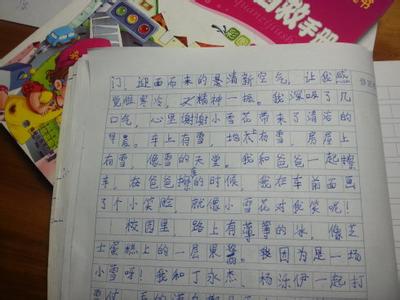 自救手册
门！迎面而来的是清新空气，让我感
觉些寒冷，又精神一振。我深吸了几
口气，心里谢谢小雪花带来了清洁的
早晨。车上有雪，地上有雪，房屋上
有雪，像雪的天堂。我和爸爸一起擦
车，在爸爸擦的时候，我在车前面画
了个小笑脸，就像小雪花对我笑呢！
校园里，路上有薄薄的冰，像芝
士蛋糕上的一层果酱。我因为是一场
小雪呀！我和丁永杰、杨泺伊一起打